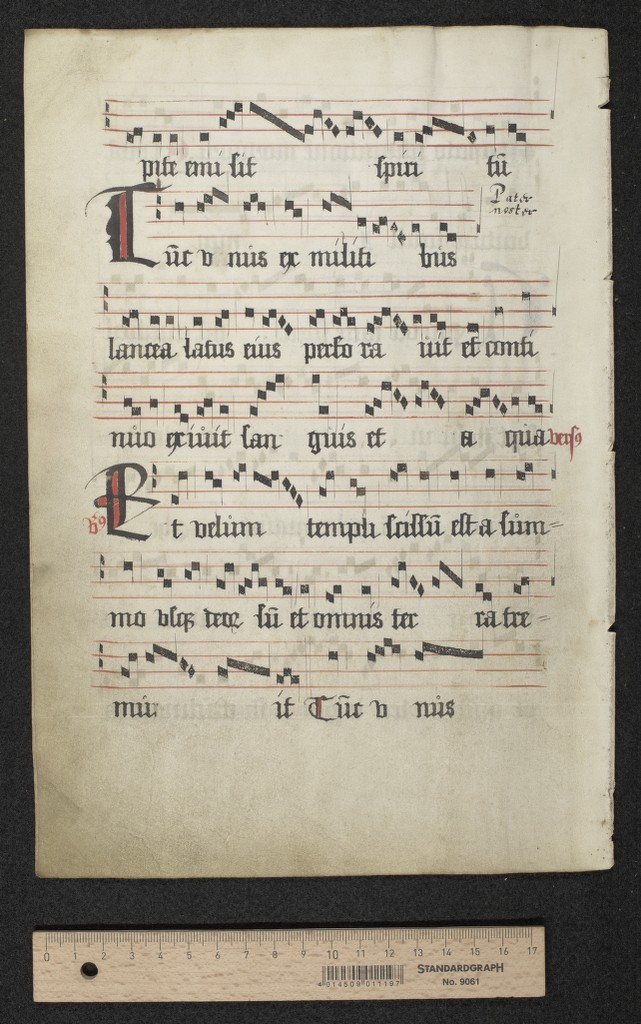 pite emisit spiritū
Pater
noster
Tūc vnus ex militibus
lancea latus eius perforauit et conti
nuo exiuit sanguis et aqua versꝰ
Et velum templi scissū est a sum=
mo vsqꝫ deorsū et omnis terra tre=
muit Tūc vnus
0 1 2 3 4 5 6 7 8 9 10 11 12 13 14 15 16 17
4 014509 011197
STANDARDGRAPH
No. 9061